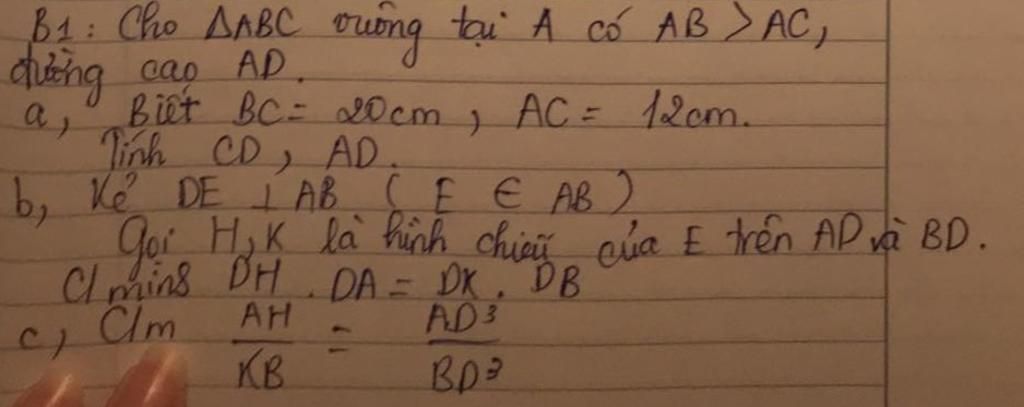 B1: Cho ΔABC vuông tại A có AB > AC,
đường cao AD.
a, Biết BC = 20cm, AC = 12cm.
Tính CD, AD.
b, Kẻ DE ⊥ AB ( E ∈ AB )
Gọi H,K là hình chiếu của E trên AD và BD.
C/minh DH . DA = DK . DB
c, C/m AH/KB = AD³/BD³